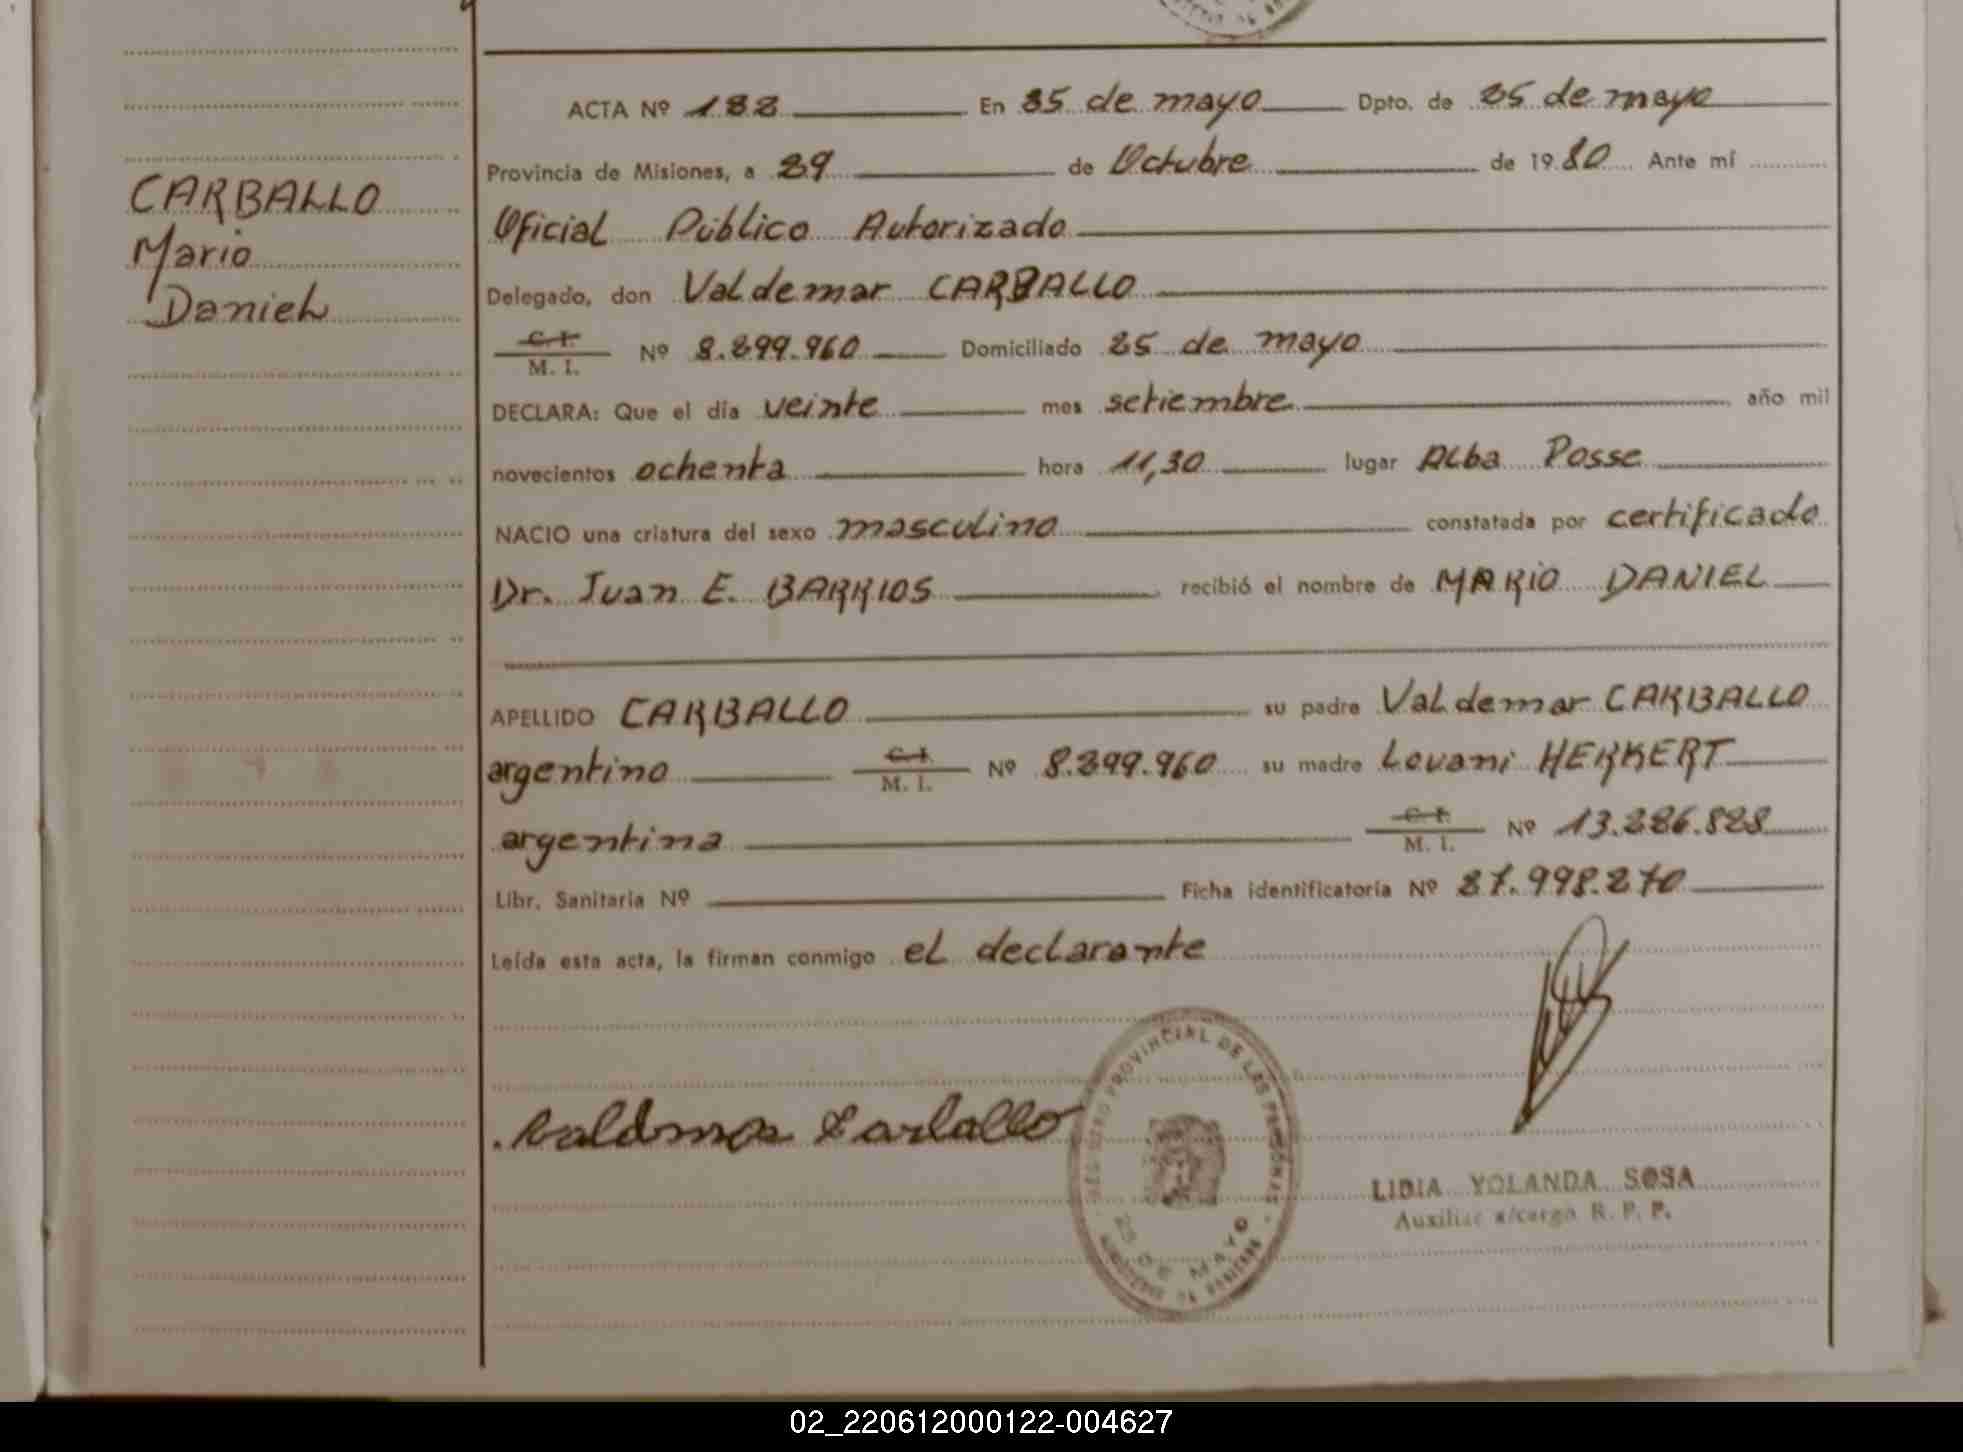 ACTA Nº 182 En 25 de mayo Dpto. de 25 de mayo
CARBALLO
Mario
Daniel
Provincia de Misiones, a 29 de Octubre de 1980 Ante mí
Oficial Público Autorizado
Delegado, don Valdemar CARBALLO
C. I.
M. I. Nº 8.299.960 Domiciliado 25 de mayo
DECLARA: Que el día veinte mes setiembre año mil
novecientos ochenta hora 11,30 lugar Alba Posse
NACIO una criatura del sexo masculino constatada por certificado
Dr. Juan E. BARRIOS recibió el nombre de MARIO DANIEL
APELLIDO CARBALLO su padre Valdemar CARBALLO
argentino C. I. M. I. Nº 8.299.960 su madre Lovani HERKERT
argentina C. I. M. I. Nº 13.226.828
Libr. Sanitaria Nº Ficha identificatoria Nº 27.998.270
Leída esta acta, la firman conmigo el declarante
Valdemar Carballo
REGISTRO PROVINCIAL DE LAS PERSONAS
25 DE MAYO
MINISTERIO DE GOBIERNO
LIDIA YOLANDA SOSA
Auxiliar a/cargo R. P. P.
02_220612000122-004627